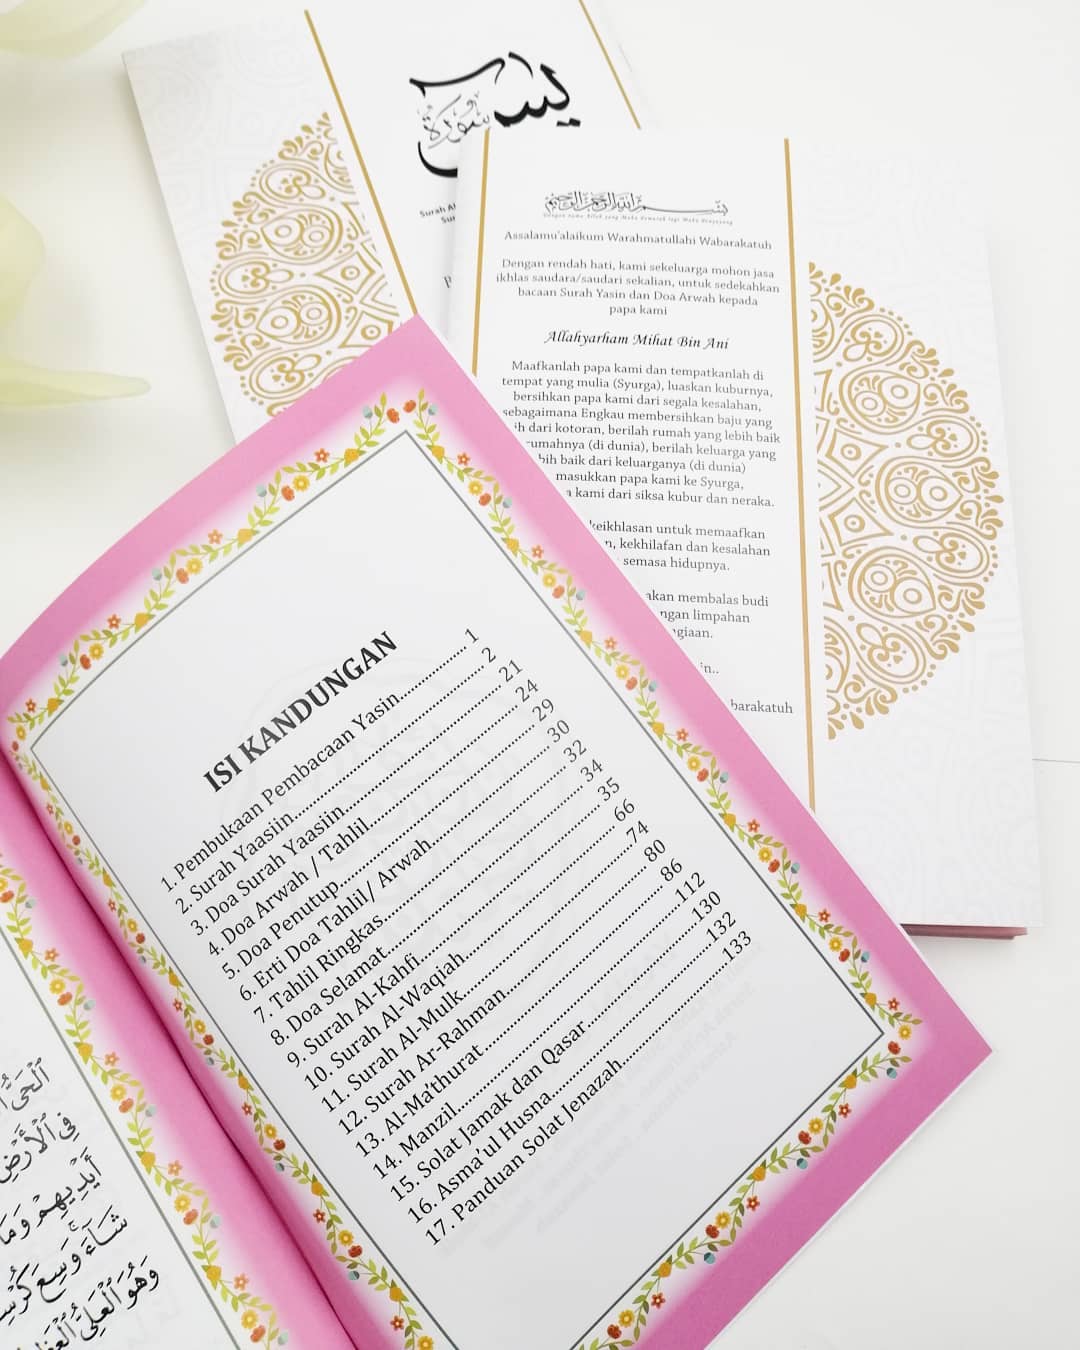 يس
سورة
Surah
بسم الله الرحمن الرحيم
Dengan nama Allah yang Maha Pemurah lagi Maha Penyayang
Assalamu'alaikum Warahmatullahi Wabarakatuh
Dengan rendah hati, kami sekeluarga mohon jasa
ikhlas saudara/saudari sekalian, untuk sedekahkan
bacaan Surah Yasin dan Doa Arwah kepada
papa kami
Allahyarham Mihat Bin Ani
Maafkanlah papa kami dan tempatkanlah di
tempat yang mulia (Syurga), luaskan kuburnya,
bersihkan papa kami dari segala kesalahan,
sebagaimana Engkau membersihkan baju yang
dari kotoran, berilah rumah yang lebih baik
(di dunia), berilah keluarga yang
baik dari keluarganya (di dunia)
masukkan papa kami ke Syurga,
kami dari siksa kubur dan neraka.
keikhlasan untuk memaafkan
kekhilafan dan kesalahan
semasa hidupnya.
akan membalas budi
limpahan
ISI KANDUNGAN
1. Pembukaan Pembacaan Yasin............... 1
2. Surah Yaasiin........................................ 2
3. Doa Surah Yaasiin................................ 21
4. Doa Arwah / Tahlil.............................. 24
5. Doa Penutup........................................ 29
6. Erti Doa Tahlil/ Arwah........................ 30
7. Tahlil Ringkas...................................... 32
8. Doa Selamat........................................ 34
9. Surah Al-Kahfi..................................... 35
10. Surah Al-Waqiah................................ 66
11. Surah Al-Mulk................................... 74
12. Surah Ar-Rahman.............................. 80
13. Al-Ma'thurat..................................... 86
14. Manzil............................................... 112
15. Solat Jamak dan Qasar...................... 130
16. Asma'ul Husna.................................. 132
17. Panduan Solat Jenazah...................... 133
ٱلْحَىُّ
فِى ٱلْأَرْضِ
أَيْدِيهِمْ وَمَا
شَآءَ ۚ وَسِعَ
وَهُوَ ٱلْعَلِىُّ